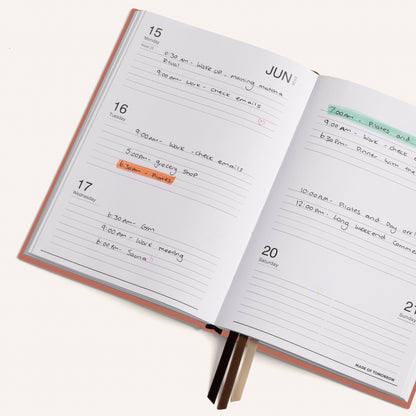 15
Monday
JUN
6:30 AM - Wake up - morning matcha
Ritual
9:00AM - Work - Check emails
16
Tuesday
9:00AM - Work - Check emails
5:00PM - grocery shop
6:30AM - Pilates
17
Wednesday
6:30AM - Gym
9:00AM - Work meeting
6:00PM - Sauna
7:00AM - Pilates and
9:00AM - Work - Check
6:30PM - Dinner with the
10:00AM - Pilates and Day off!
12:00PM - Long weekend comme
20
Saturday
21
Sunday
MADE OF TOMORROW